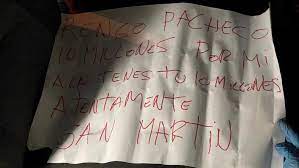 RENGO PACHECO
10 MILLONES POR MI
AHI TENES TU 10 MILLONES
ATENTAMENTE
SAN MARTIN